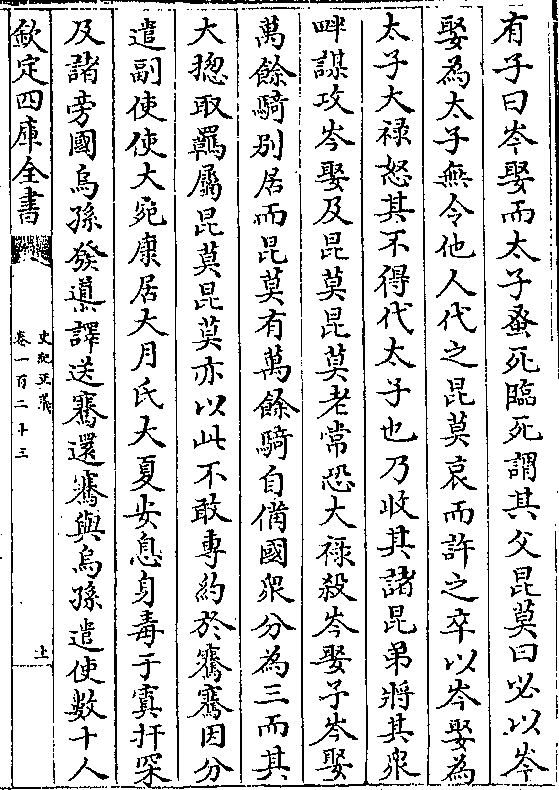 有子曰岑娶而太子蚤死臨死謂其父昆莫曰必以岑
娶為太子無令他人代之昆莫哀而許之卒以岑娶為
太子大禄怒其不得代太子也乃收其諸昆弟將其衆
畔謀攻岑娶及昆莫昆莫老常恐大禄殺岑娶予岑娶
萬餘騎别居而昆莫有萬餘騎自備國衆分為三而其
大揔取羈屬昆莫昆莫亦以此不敢專約於騫騫因分
遣副使使大宛康居大月氏大夏安息身毒于窴扞罙
及諸旁國烏孫發導譯送騫還騫與烏孫遣使數十人
欽定四庫全書
史記正義
卷一百二十三